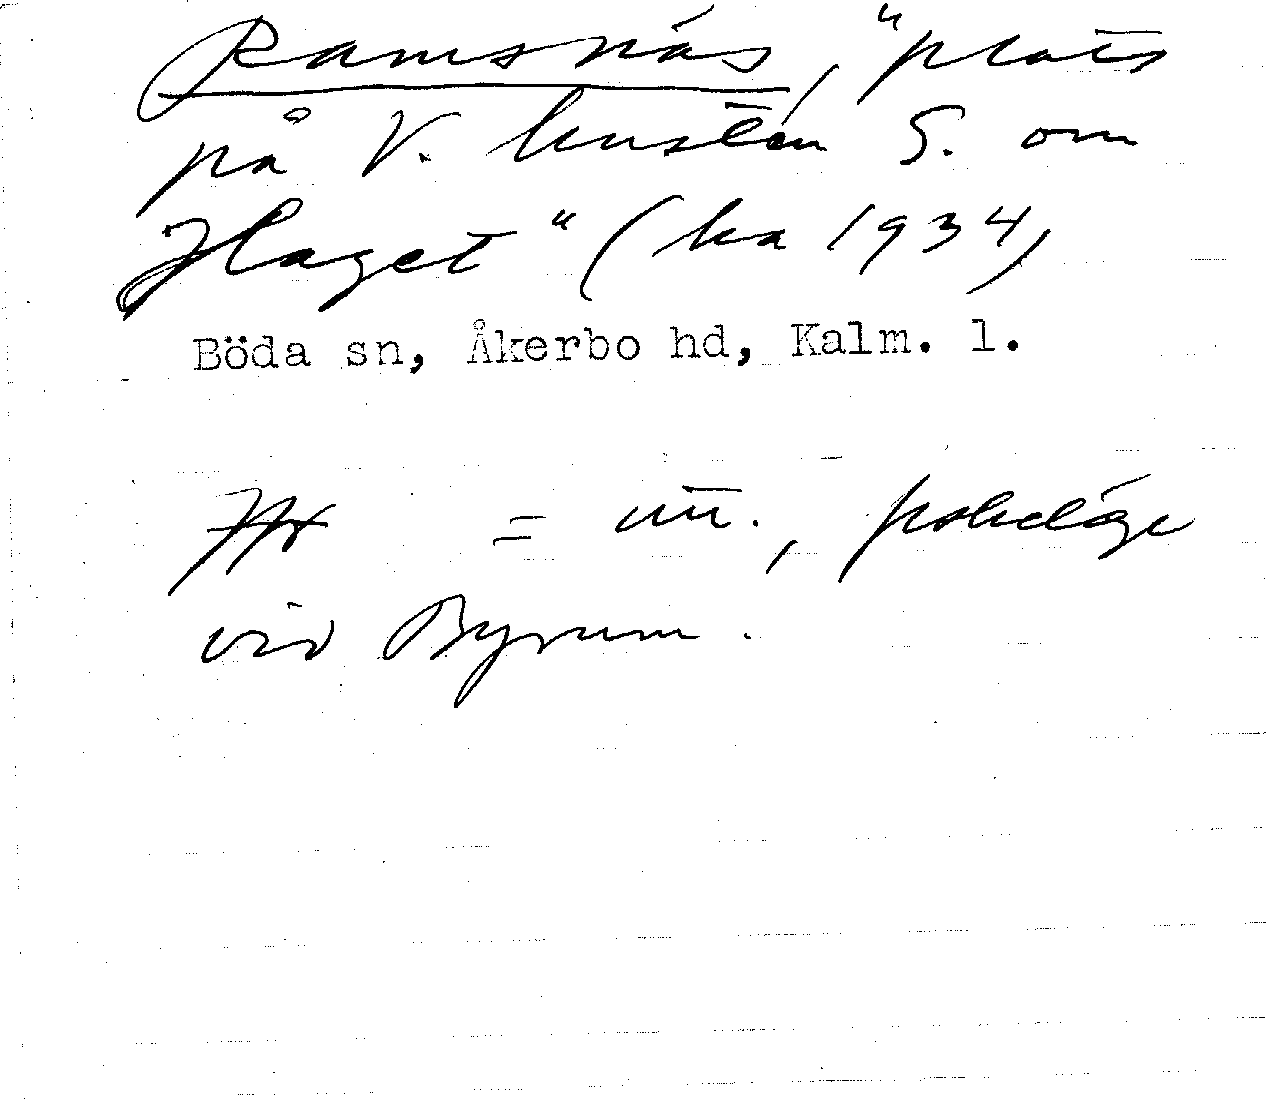 Ramsnäs, "plats
på V. kusten S. om
Haget" (ka 1934)
Böda sn, Åkerbo hd, Kalm. l.
=
vid Byrum.